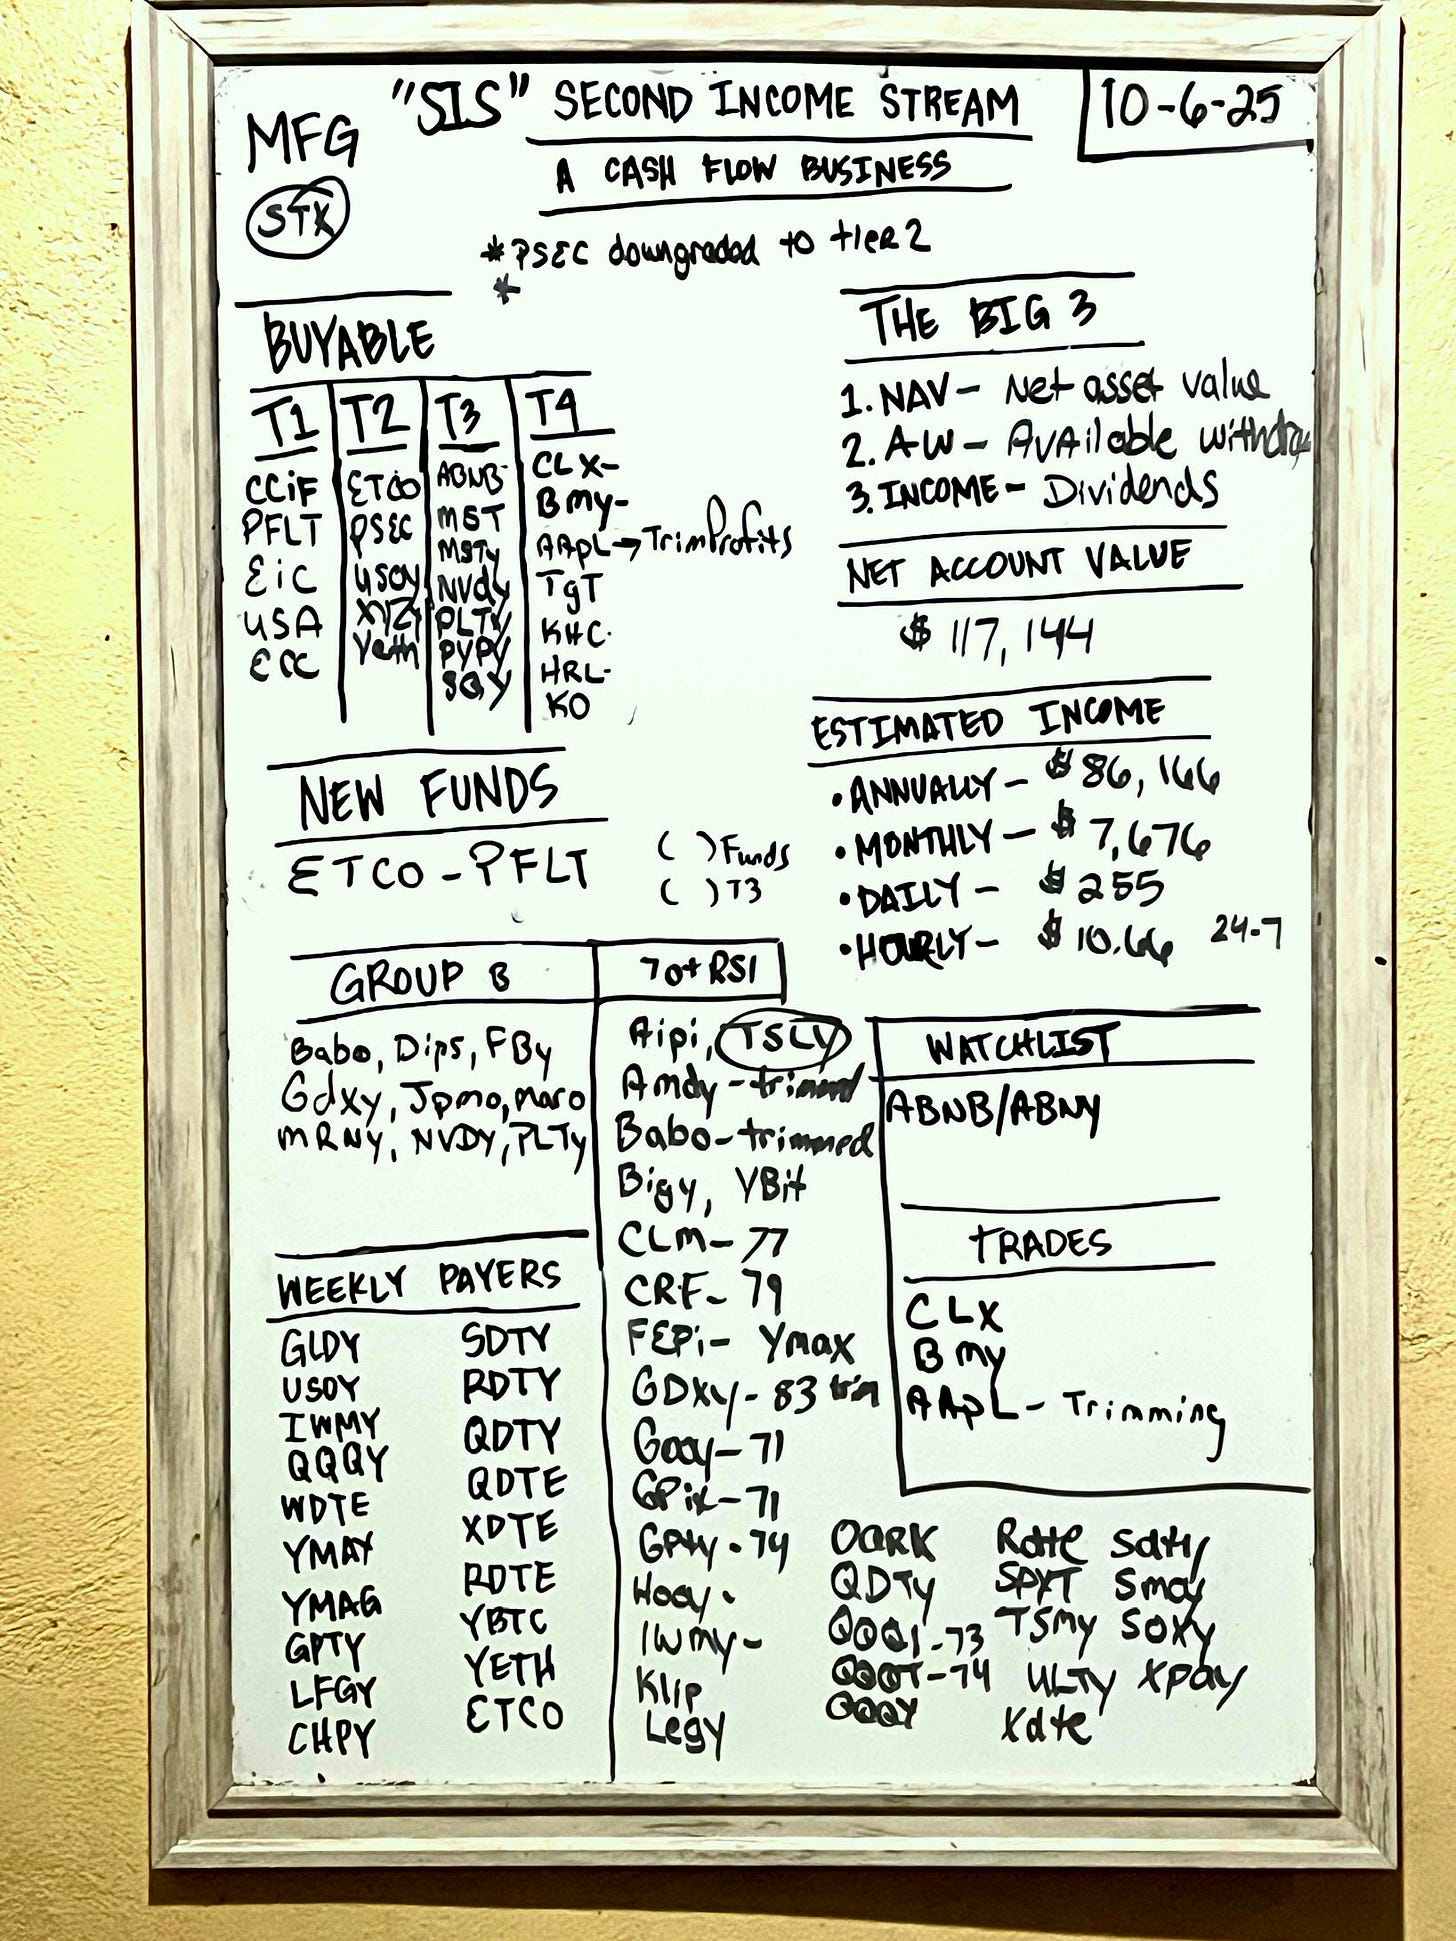 MFG
STK
"SIS" SECOND INCOME STREAM
10-6-25
A CASH FLOW BUSINESS
*PSEC downgraded to tier 2
*
BUYABLE
T1
CCiF
PFLT
EiC
USA
ECC
T2
ETCO
PSEC
USOY
XYZY
Yeth
T3
ABNB-
MST
MSTy
NVdy
PLTY
PYPY
SQY
T4
CLX-
Bmy-
AApL → TrimProfits
TgT
KHC-
HRL-
KO
THE BIG 3
1. NAV - Net asset value
2. AW - AvAilable withdraw
3. INCOME - Dividends
NET ACCOUNT VALUE
$ 117,144
ESTIMATED INCOME
• ANNUALLY - $ 86,166
• MONTHLY - $ 7,676
• DAILY - $ 255
• HOURLY - $ 10.66 24-7
NEW FUNDS
ETCO - PFLT
( ) Funds
( ) T3
GROUP B
Babo, Dips, FBy
Gdxy, Jpmo, maro
MRNY, NVDY, PLTy
WEEKLY PAYERS
GLDY
USOY
IWMY
QQQY
WDTE
YMAX
YMAG
GPTY
LFGY
CHPY
SDTY
RDTY
QDTY
QDTE
XDTE
RDTE
YBTC
YETH
ETCO
70+ RSI
Aipi, TSLY
Amdy - trimmed
Babo - trimmed
Bigy, YBit
CLM - 77
CRF - 79
FEPi - Ymax
GDXY - 83 trim
Gooy - 71
GPix - 71
GPty - 74
Hooy -
IWmy -
Klip
Legy
WATCHLIST
ABNB/ABNY
TRADES
CLX
Bmy
AApL - Trimming
OARK
QDTy
QQQI - 73
QQQT - 74
QQQY
Rdte
SPYT
TSmy
ULTy
Xdte
Sdty
Smcy
SOXY
Xpay